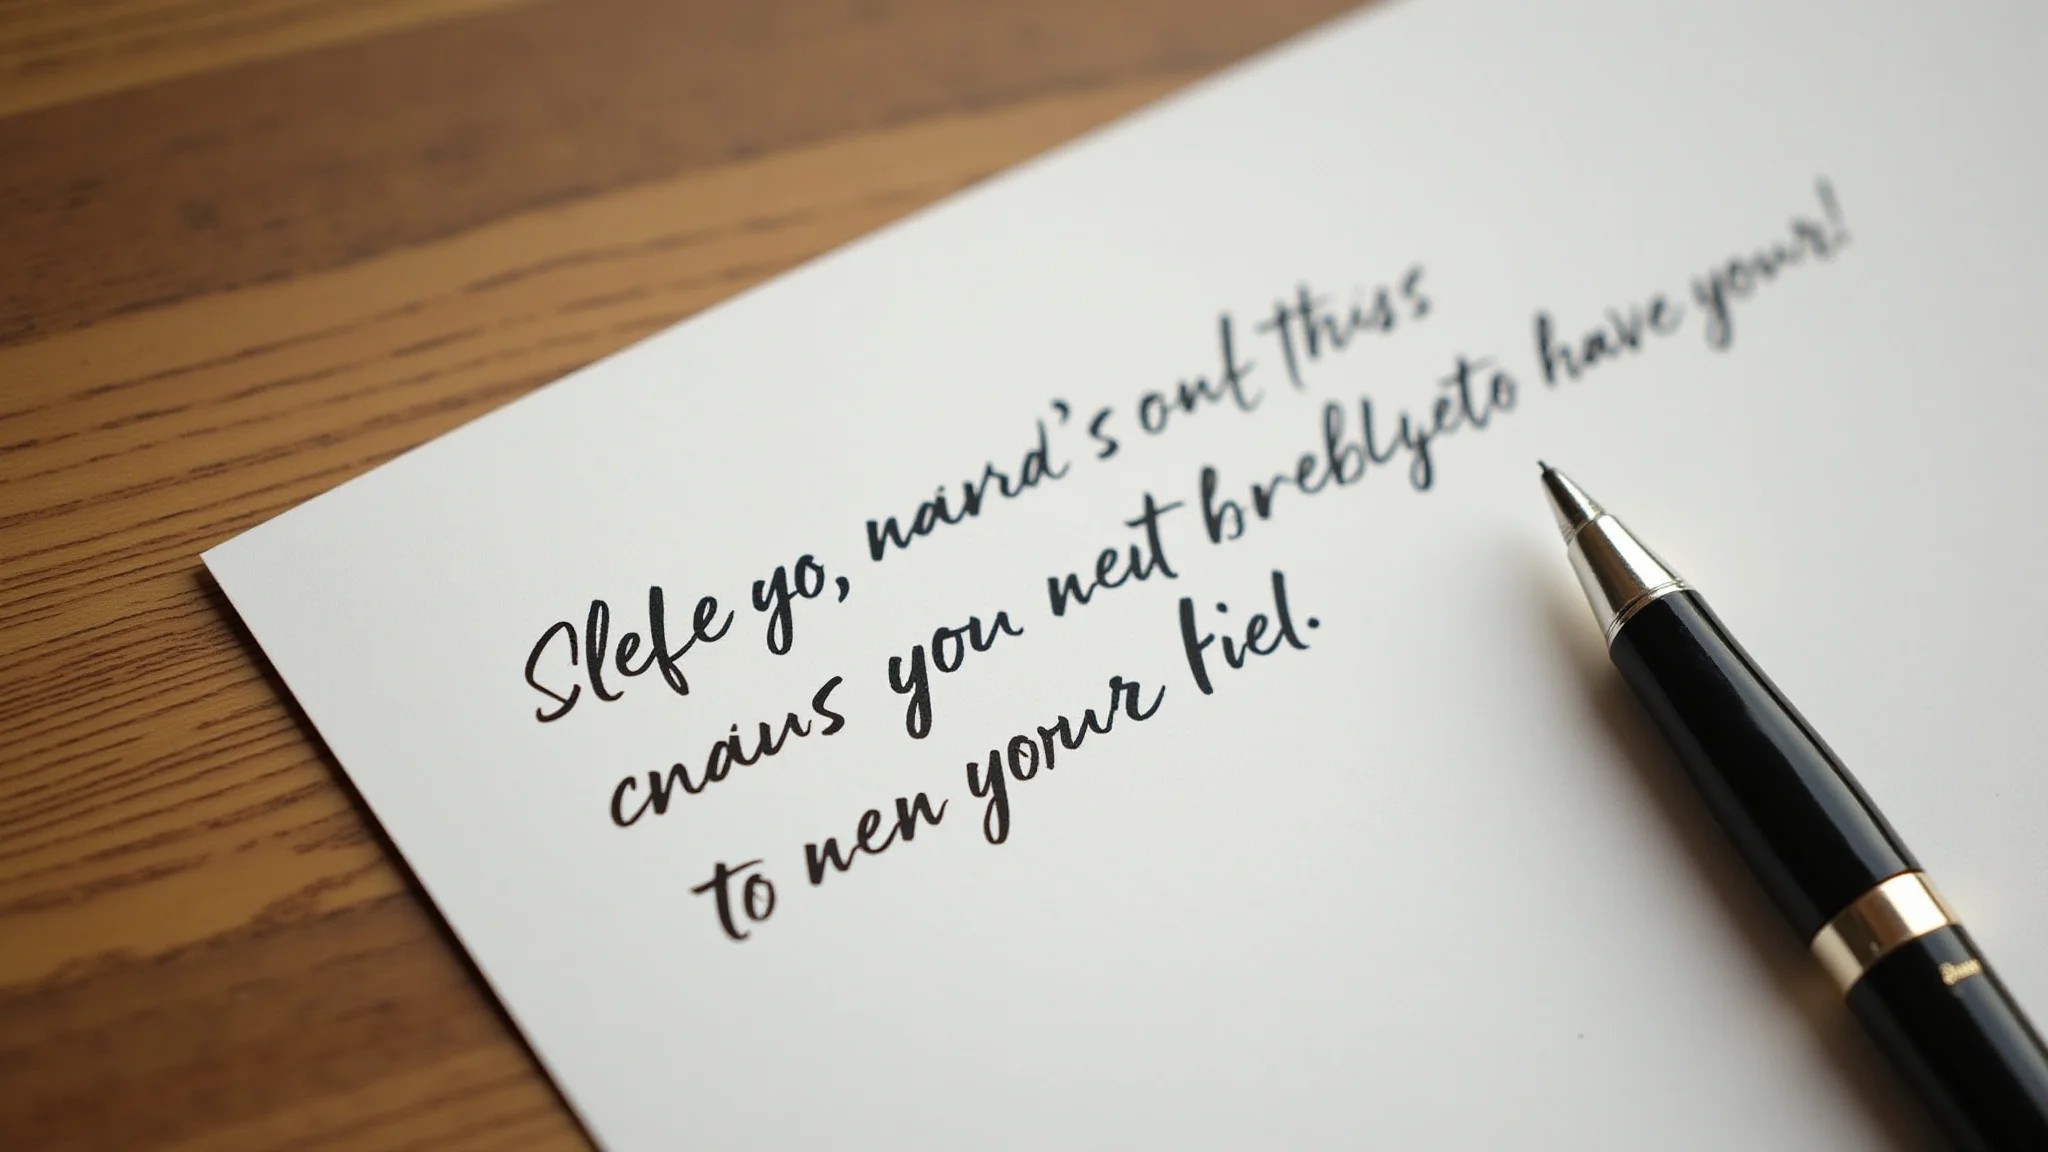 Slefe yo, naird's onf thiss
cnaius you neit breblyeto have your!
to nen yorur fiel.